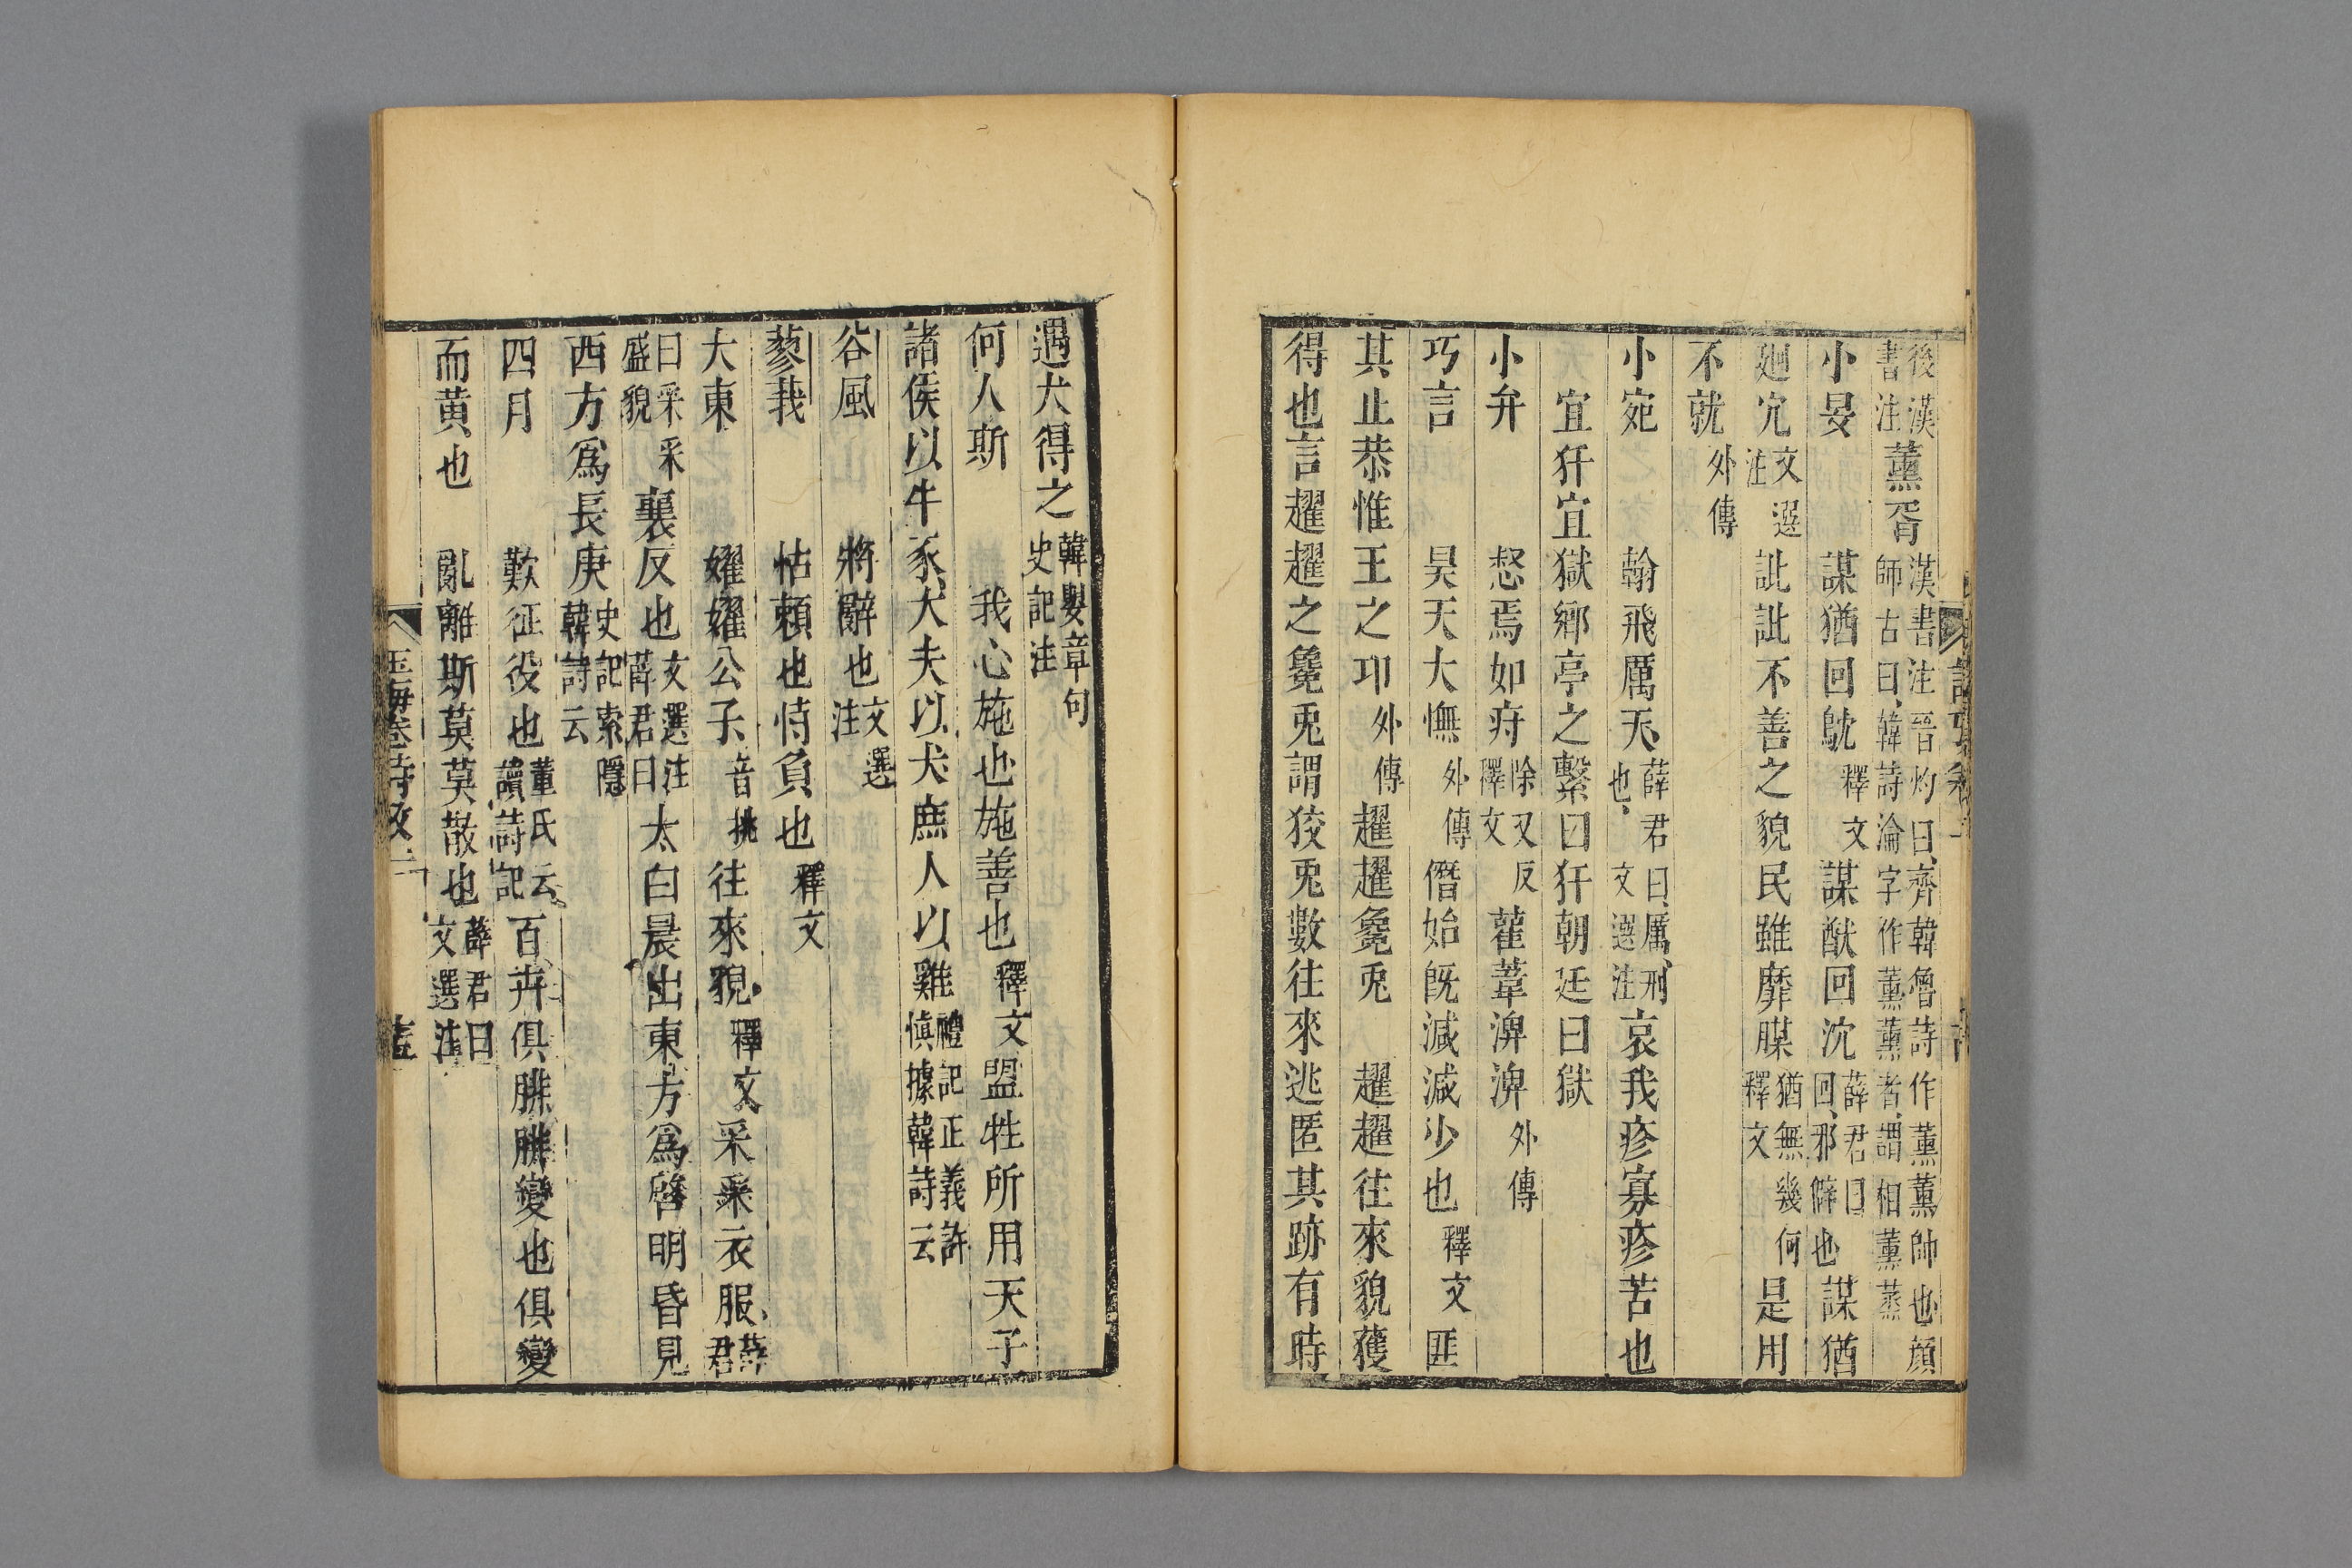 後漢書注薰胥漢書注晉灼曰齊韓魯詩作薰薰帥也顔師古曰韓詩淪字作薰薰者謂相薰蒸
小旻　謀猶回鴥釋文謀猷回沇薛君曰回邪僻也謀猶
廻宂文選注訿訿不善之貌民雖靡腜猶無幾何釋文是用
不就外傳
小宛　翰飛厲天薛君曰厲刑也文選注哀我㾕寡㾕苦也
宜犴宜獄鄉亭之繫曰犴朝廷曰獄
小弁　惄焉如疛除又反釋文雚葦淠淠外傳
巧言　昊天大憮外傳僭始旣減減少也釋文匪
其止恭惟王之卭外傳趯趯毚兎　趯趯往來貌獲
得也言趯趯之毚兎謂狡兎數往來逃匿其跡有時
遇犬得之韓嬰章句史記注
何人斯　我心施也施善也釋文盟牲所用天子
諸侯以牛豕大夫以犬庶人以雞禮記正義許慎據韓詩云
谷風　將辭也文選注
蓼莪　怙賴也恃負也釋文
大東　嬥嬥公子音挑往來貌釋文采采衣服薛君
曰采采盛貌襄反也文選注薛君曰太白晨出東方爲啓明昏見
西方爲長庚史記索隱韓詩云
四月　歎征役也董氏云讀詩記百卉俱腓腓變也俱變
而黄也　亂離斯莫莫散也薛君曰文選注
玉海卷詩攷二